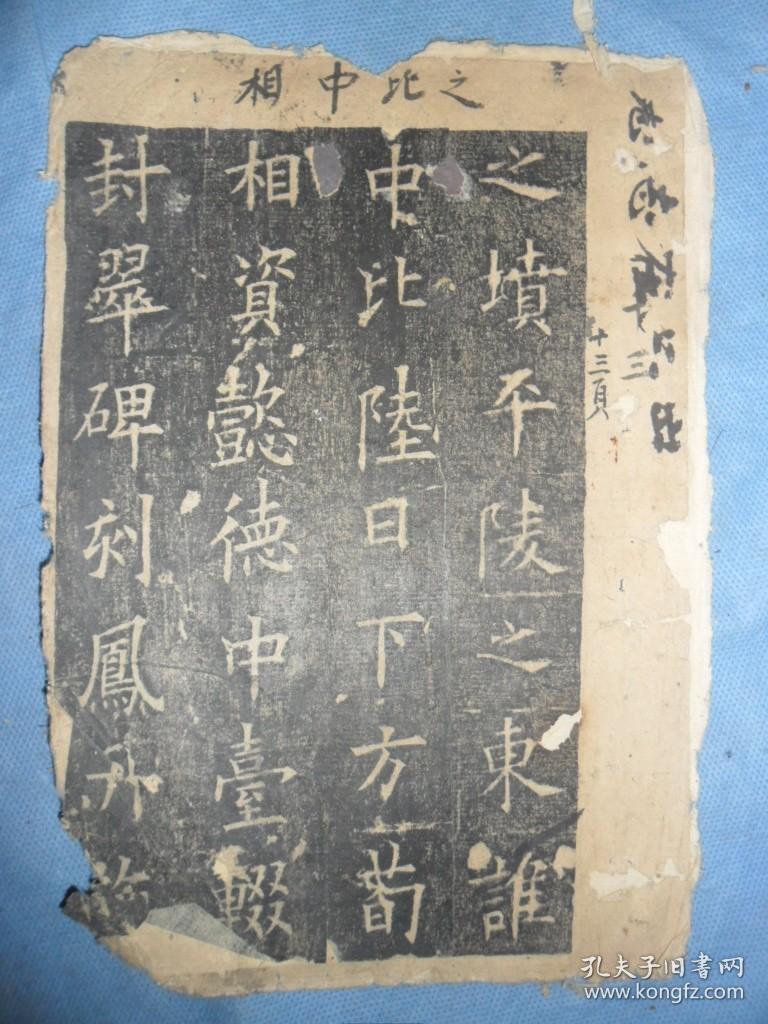 之比中相
十三頁
之墳平陵之東誰
中比陸日下方荀
相資懿德中臺輟
封翠碑刻鳳
孔夫子旧書网
www.kongfz.com